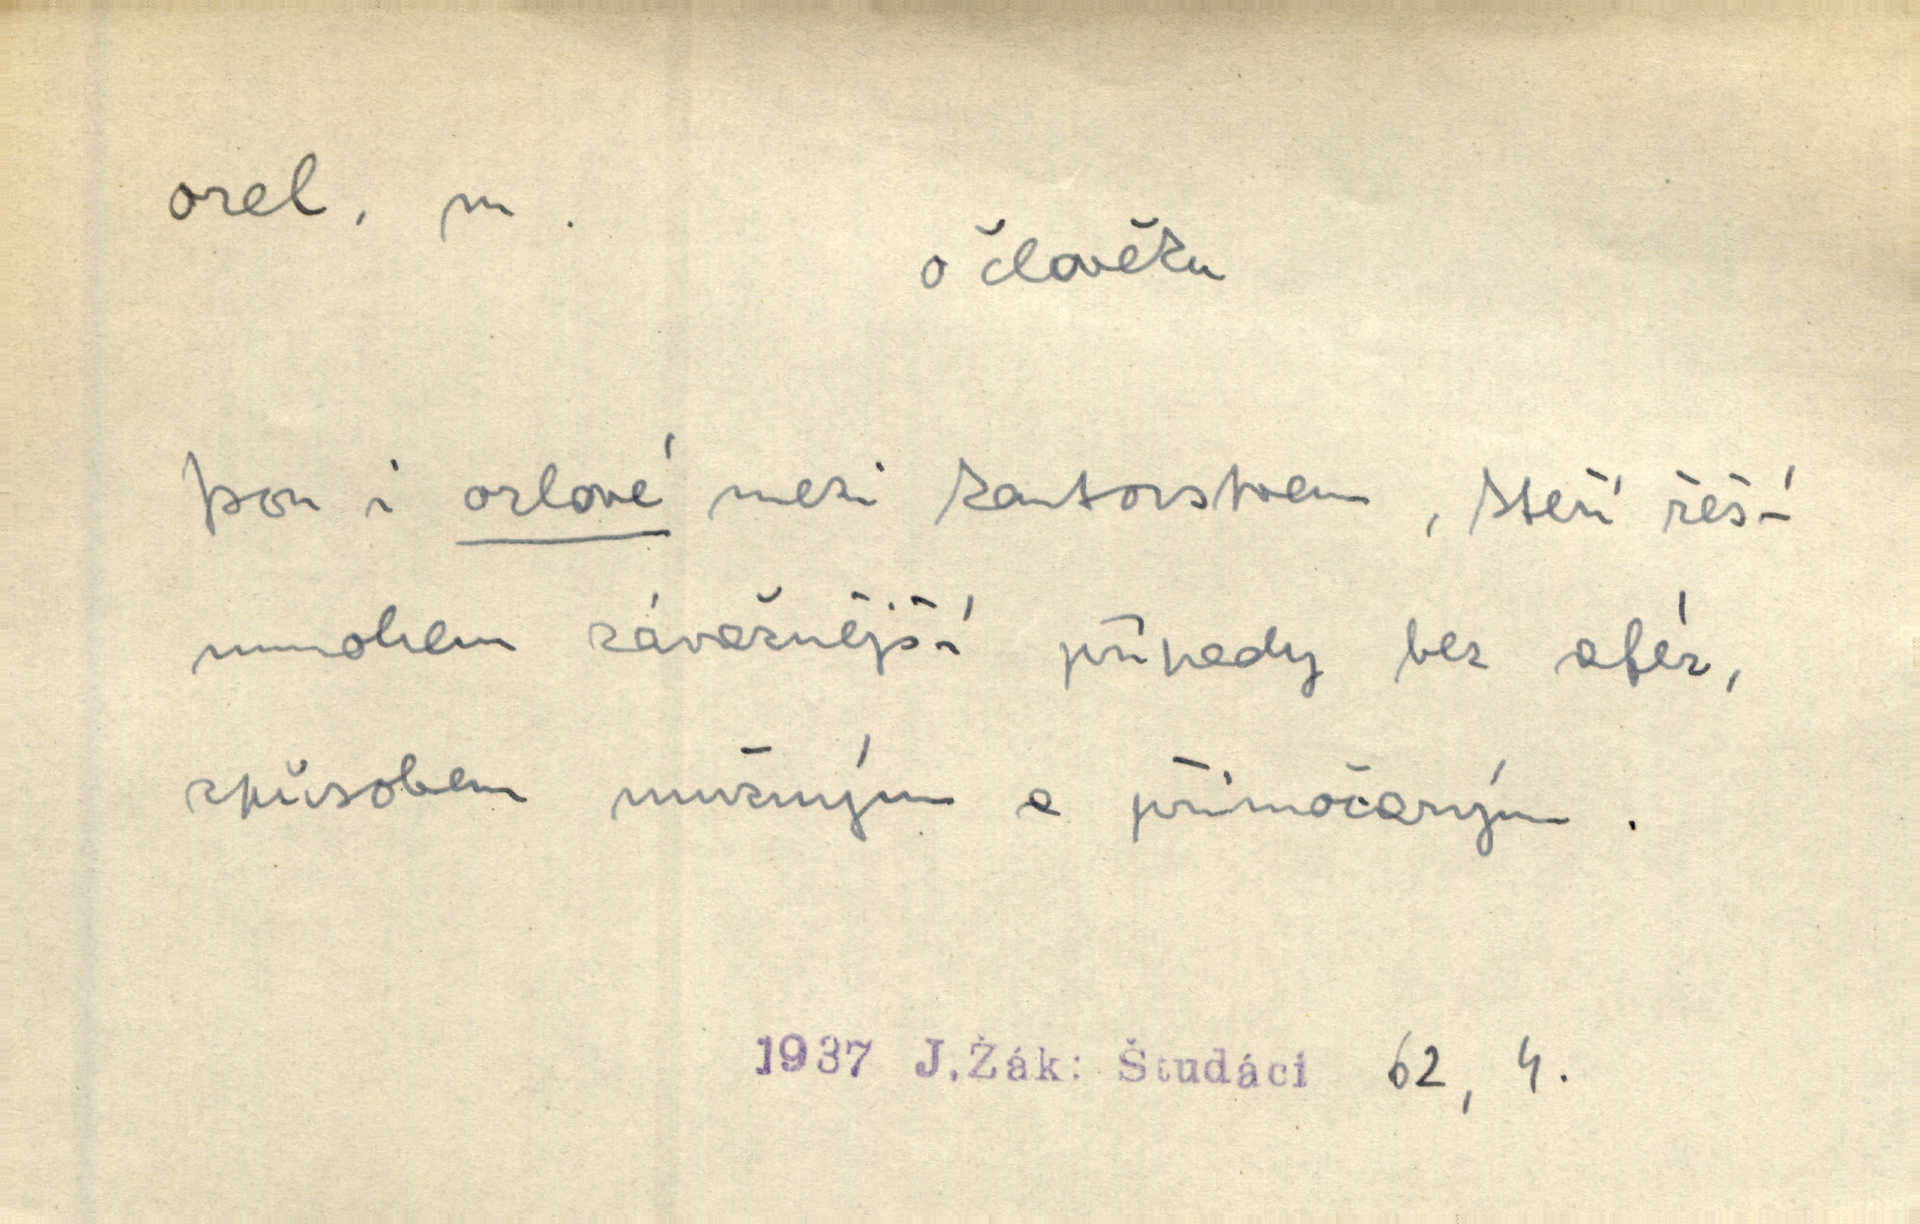 orel, m.
o člověku
Jsou i orlové mezi kantorstvem, kteří řeší
mnohem závažnější případy bez afér,
způsobem mužným a přímočarým.
1937 J.Žák: Študáci 62, 4.